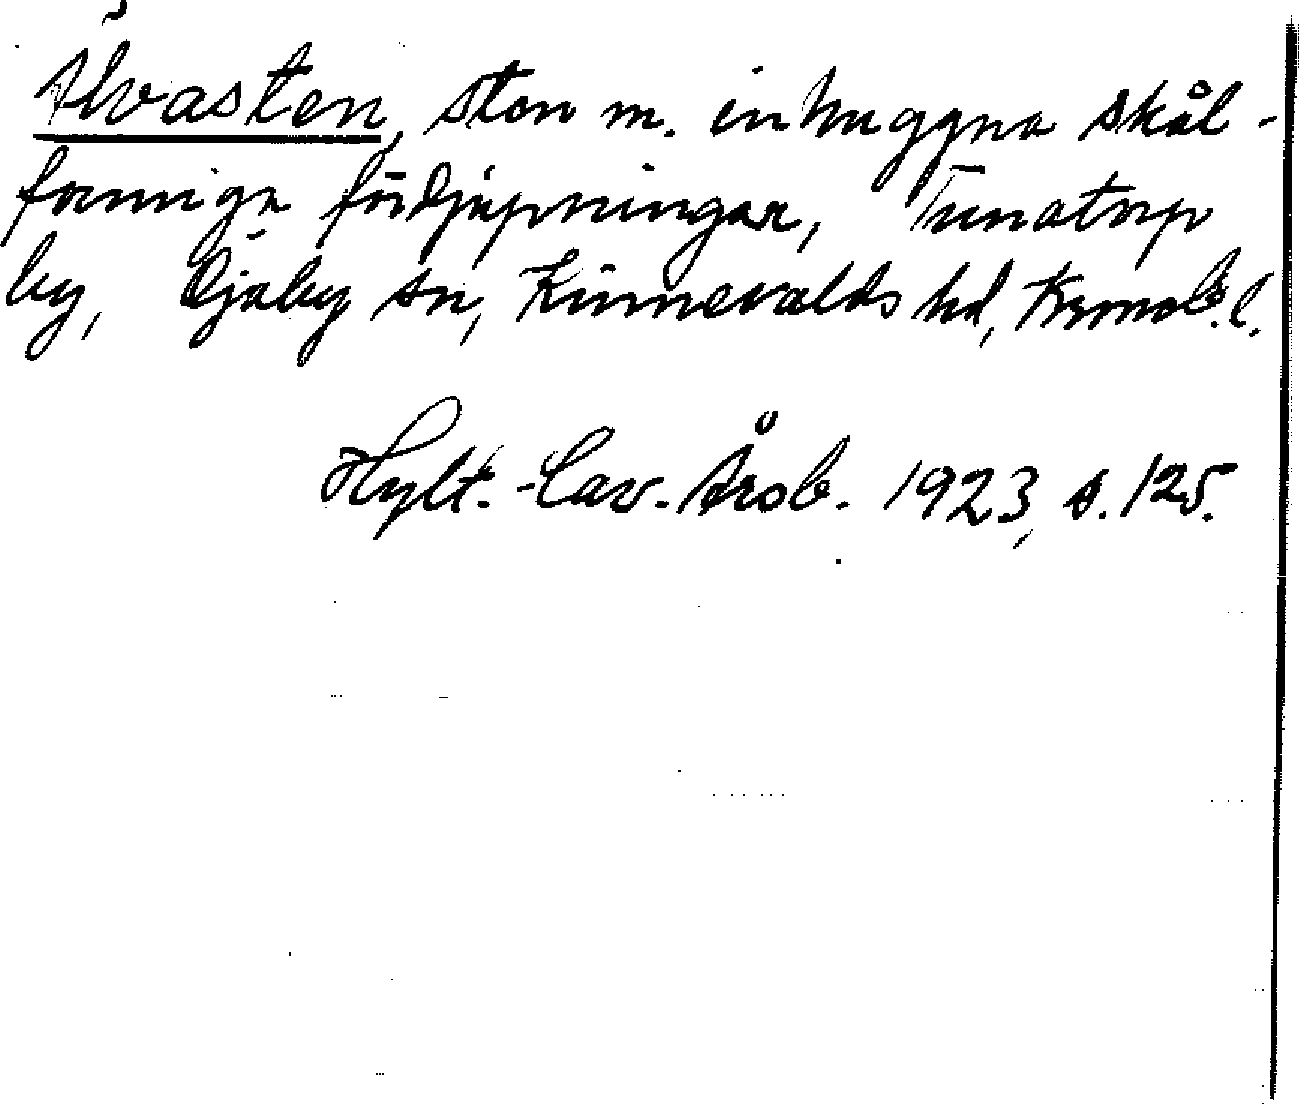 Älvasten, sten m. inhuggna skål-
formiga fördjupningar, Tunatorp
by, Öjaby sn, Kinnevalds hd, Kronob. l.
Hylt.-Cav. Årsb. 1923, s. 125.